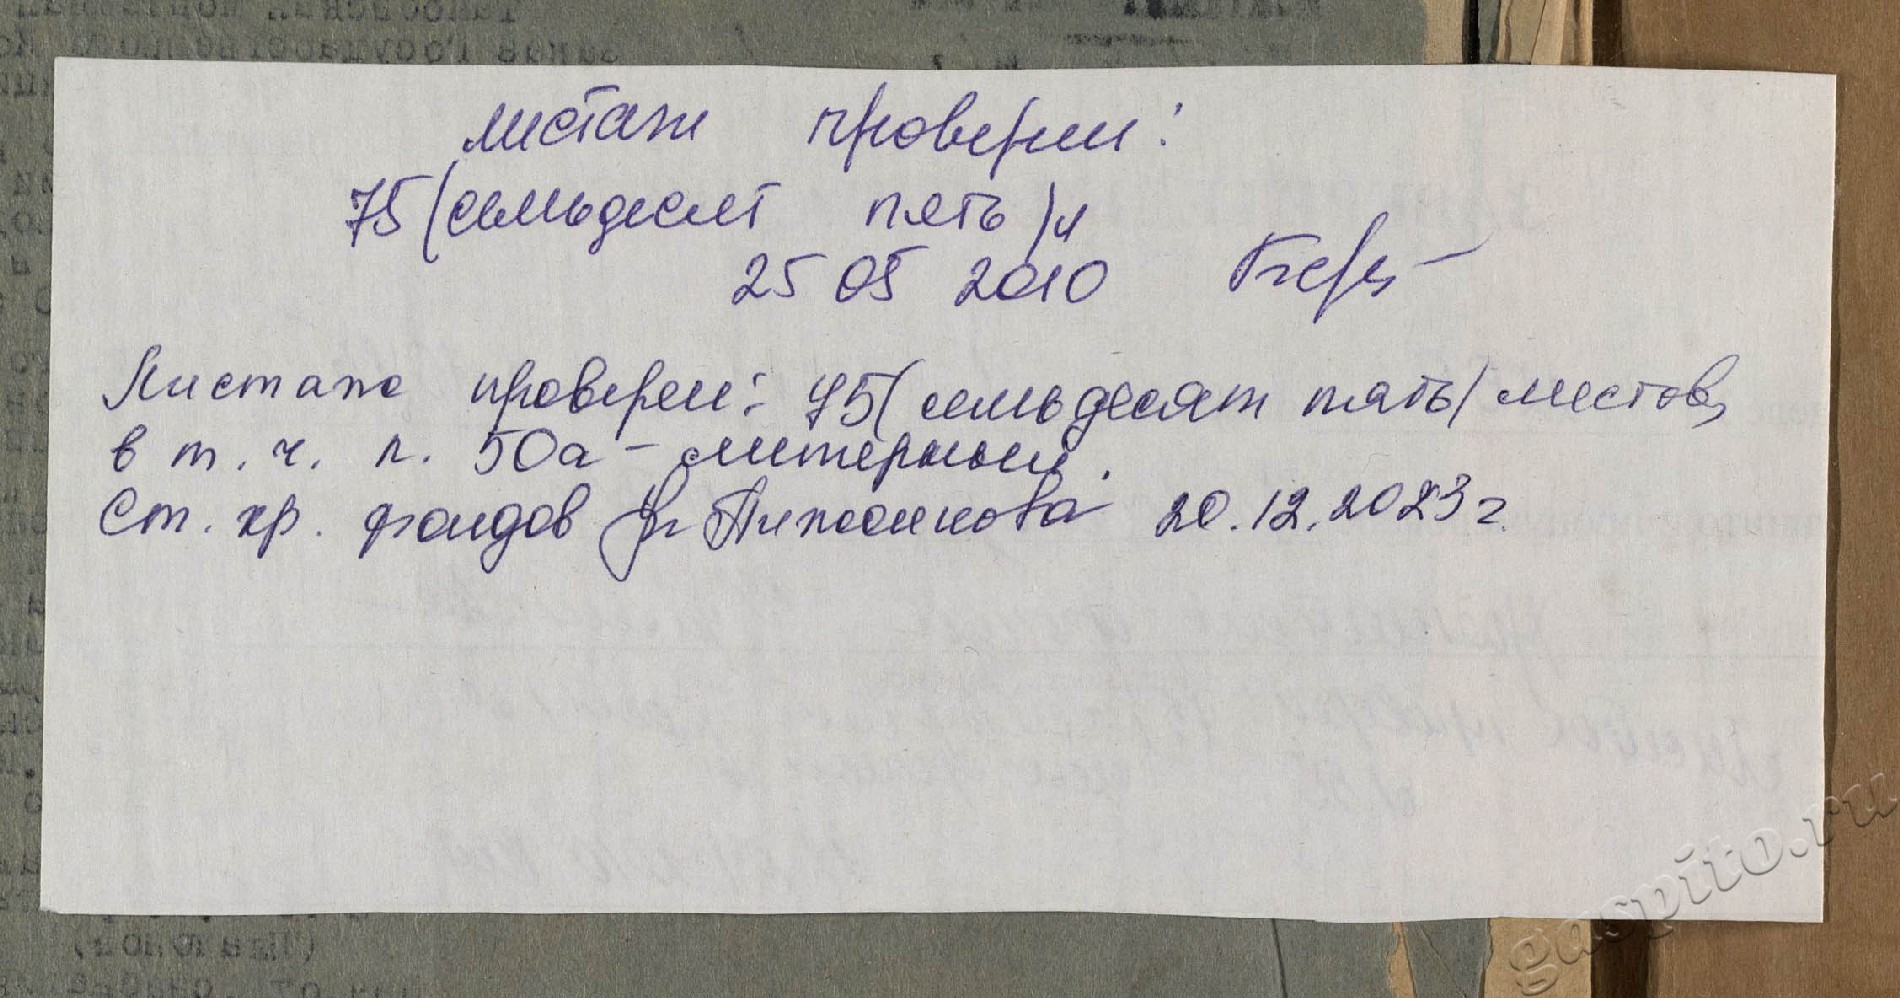 листаж проверен:
75 (семьдесят пять) л
25 05 2010
Листаж проверен: 75 (семьдесят пять) листов,
в т. ч. л. 50а - литерный.
Ст. хр. фондов 20.12.2023 г.
gaspito.ru